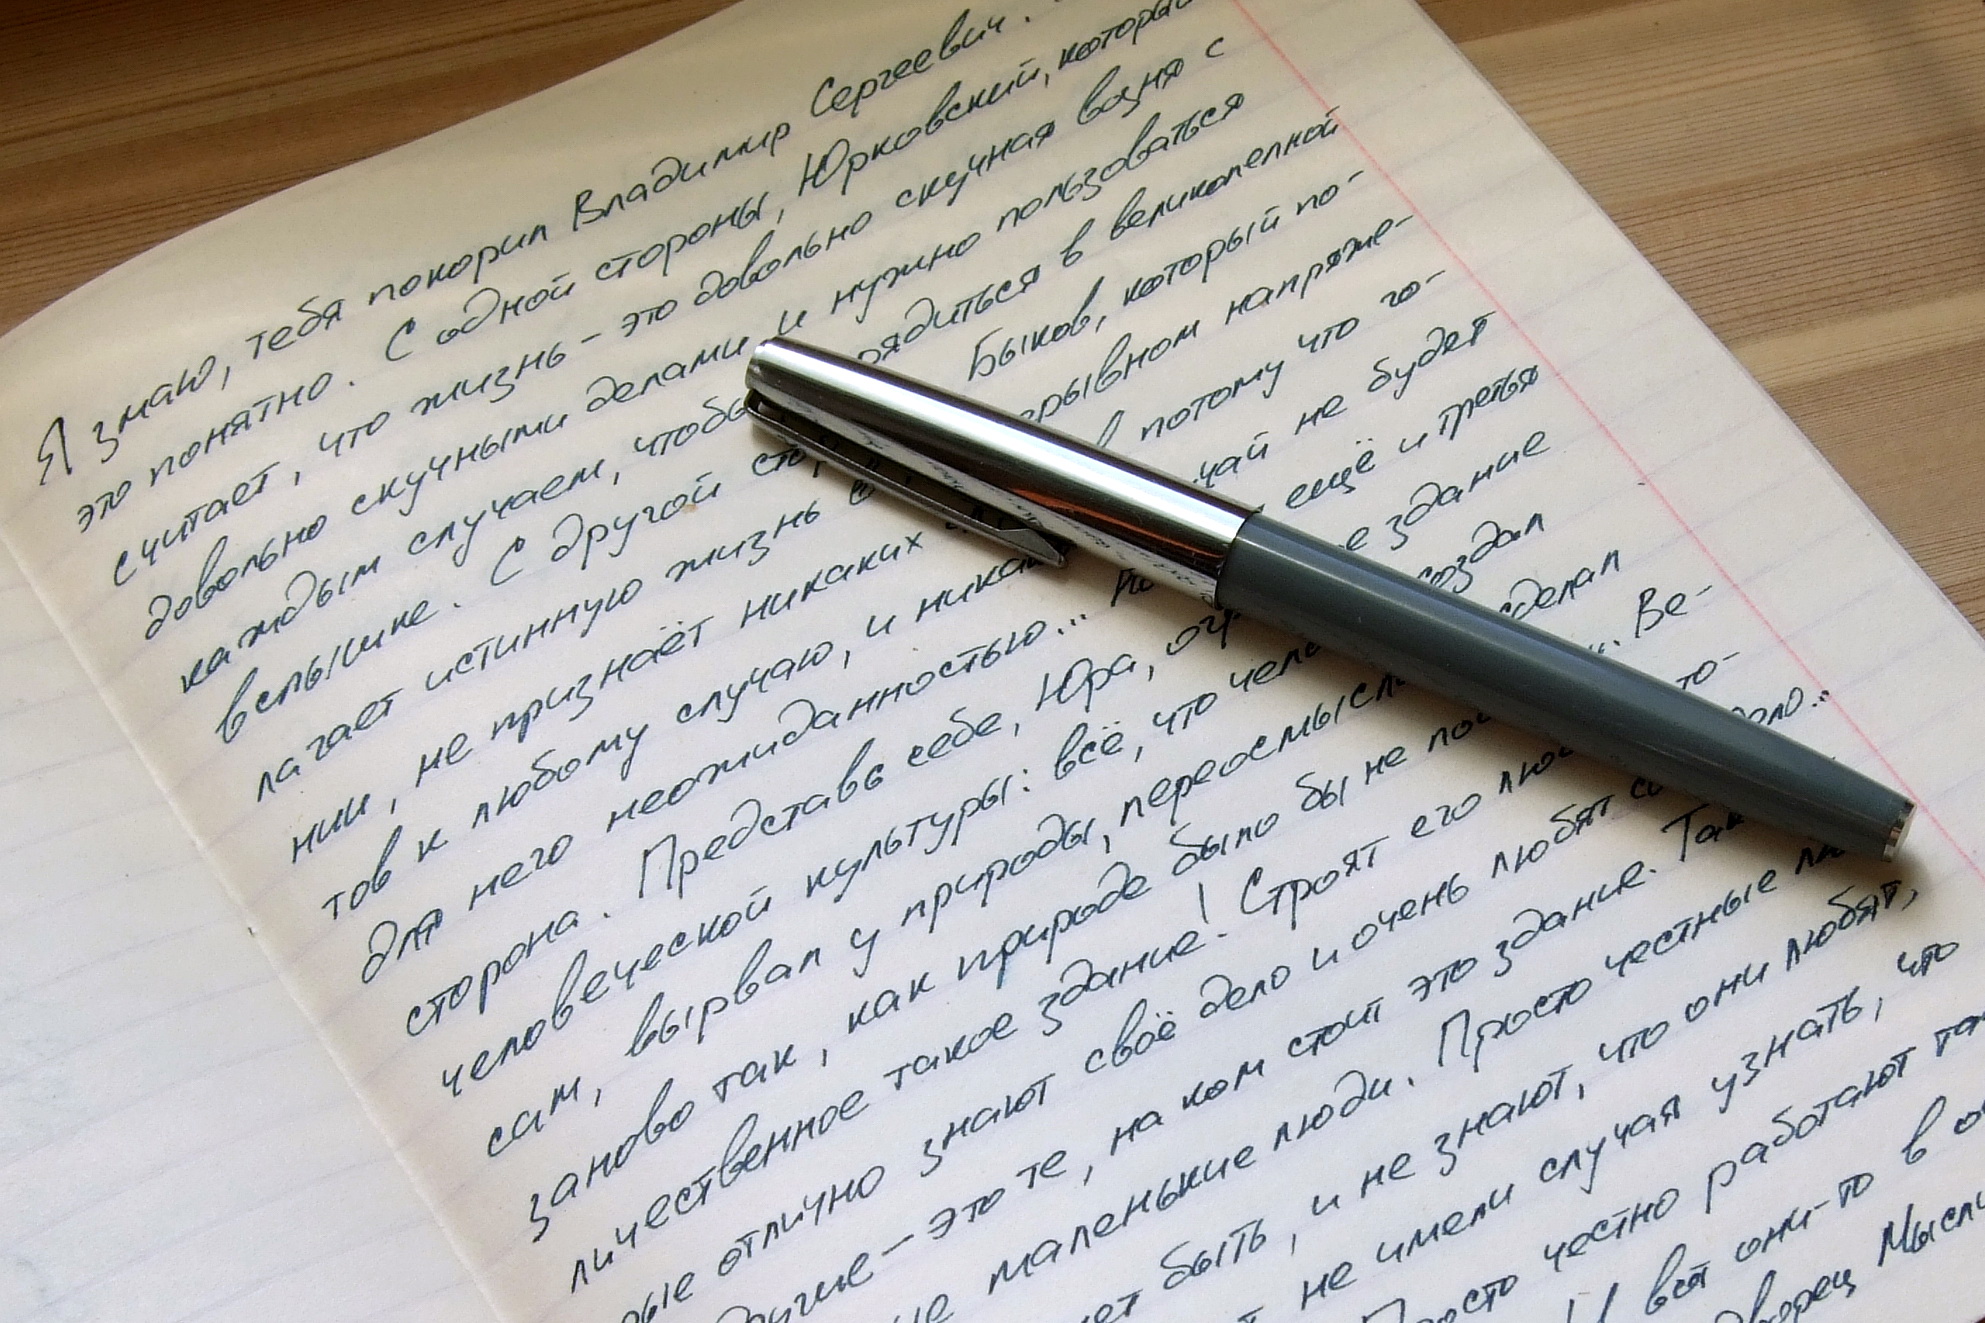 Я знаю, тебя покорил Владимир Сергеевич.
это понятно. С одной стороны, Юрковский, который
считает, что жизнь – это довольно скучная возня с
довольно скучными делами и нужно пользоваться
каждым случаем, чтобы рядиться в великолепной
вспышке. С другой сто Быков, который по-
лагает истинную жизнь в ерывном напряже-
нии, не признаёт никаких потому что го-
тов к любому случаю, и никак чай не будет
для него неожиданностью... ещё и третья
сторона. Представь себе, Юра, огр е здание
человеческой культуры: всё, что чело создал
сам, вырвал у природы, переосмысли сделал
заново так, как природе было бы не по Ве-
личественное такое здание! Строят его лю то-
рые отлично знают своё дело и очень любят с дело..
другие – это те, на ком стоит это здание. Так
не маленькие люди. Просто честные лю
ет быть, и не знают, что они любят,
не имели случая узнать, что
Просто честно работают та
И вся они-то в о
дворец Мысли